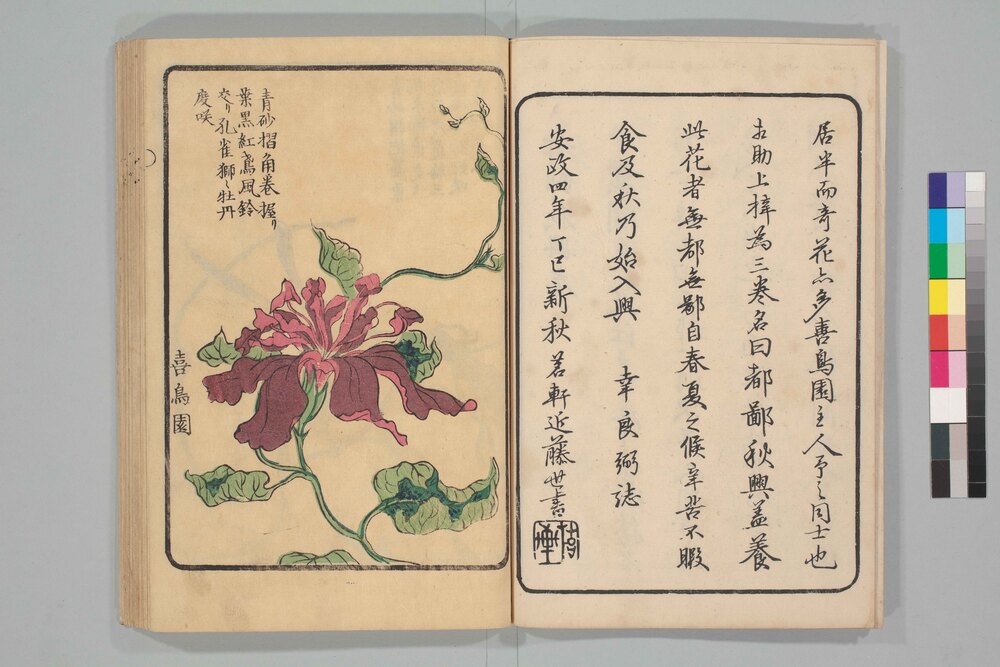 居半而奇花亦多喜鳥園主人予之同士也
助上梓為三巻名曰都鄙秋興盖養
此花者無都無鄙自春夏之候辛苦不暇
食及秋乃始入興　幸良弼誌
安政四年丁巳新秋　茗軒近藤世書
青砂摺角巻握リ
葉黒紅鳶風鈴
交リ孔雀獅々牡丹
度咲
喜鳥園